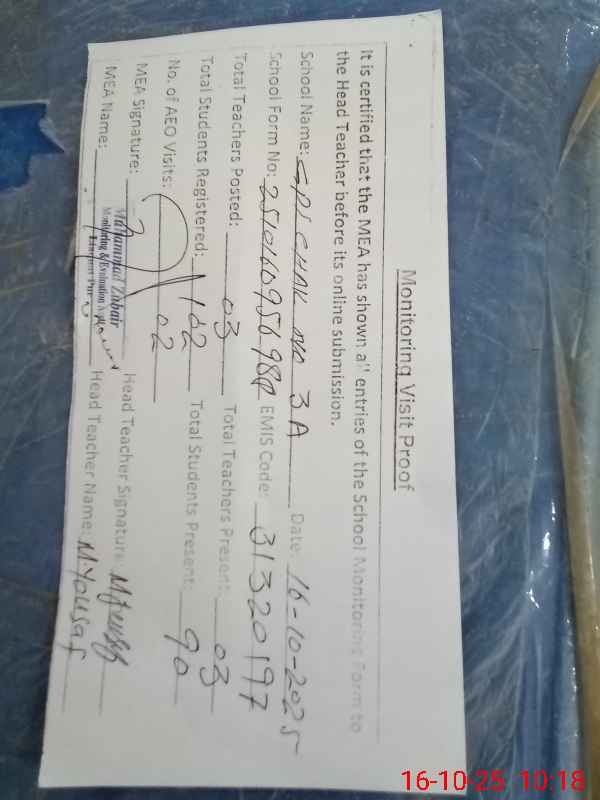 Monitoring Visit Proof
It is certified that the MEA has shown all entries of the School Monitoring Form to
the Head Teacher before its online submission.
School Name: GPS CHAK NO 3A Date: 16-10-2025
School Form No: EMIS Code: 31320197
Total Teachers Posted: 03 Total Teachers Present: 03
Total Students Registered: 102 Total Students Present: 90
No. of AEO Visits: 02
MEA Signature: Head Teacher Signature:
MEA Name: Head Teacher Name: M.Yousaf
Muhammad Zubair
Monitoring & Evaluation
16-10-25 10:18